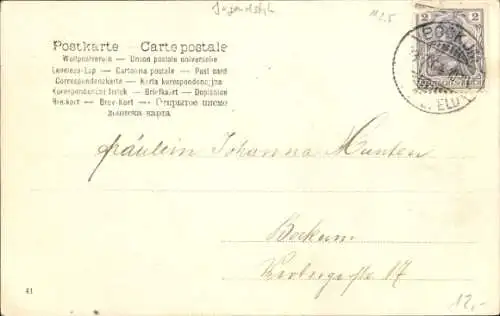 Jugendstil
Postkarte - Carte postale
Weltpostverein - Union postale universelle
Levelező-Lap - Cartolina postale - Post card
Correspondenzkarte - Karta korespondencyjna
Korespondenční lístek - Briefkaart - Dopisnice
Brevkort - Brev-kort - Открытое письмо
Дописна карта
2
Fräulein Johanna Munten
Beckum
17
41
12,-